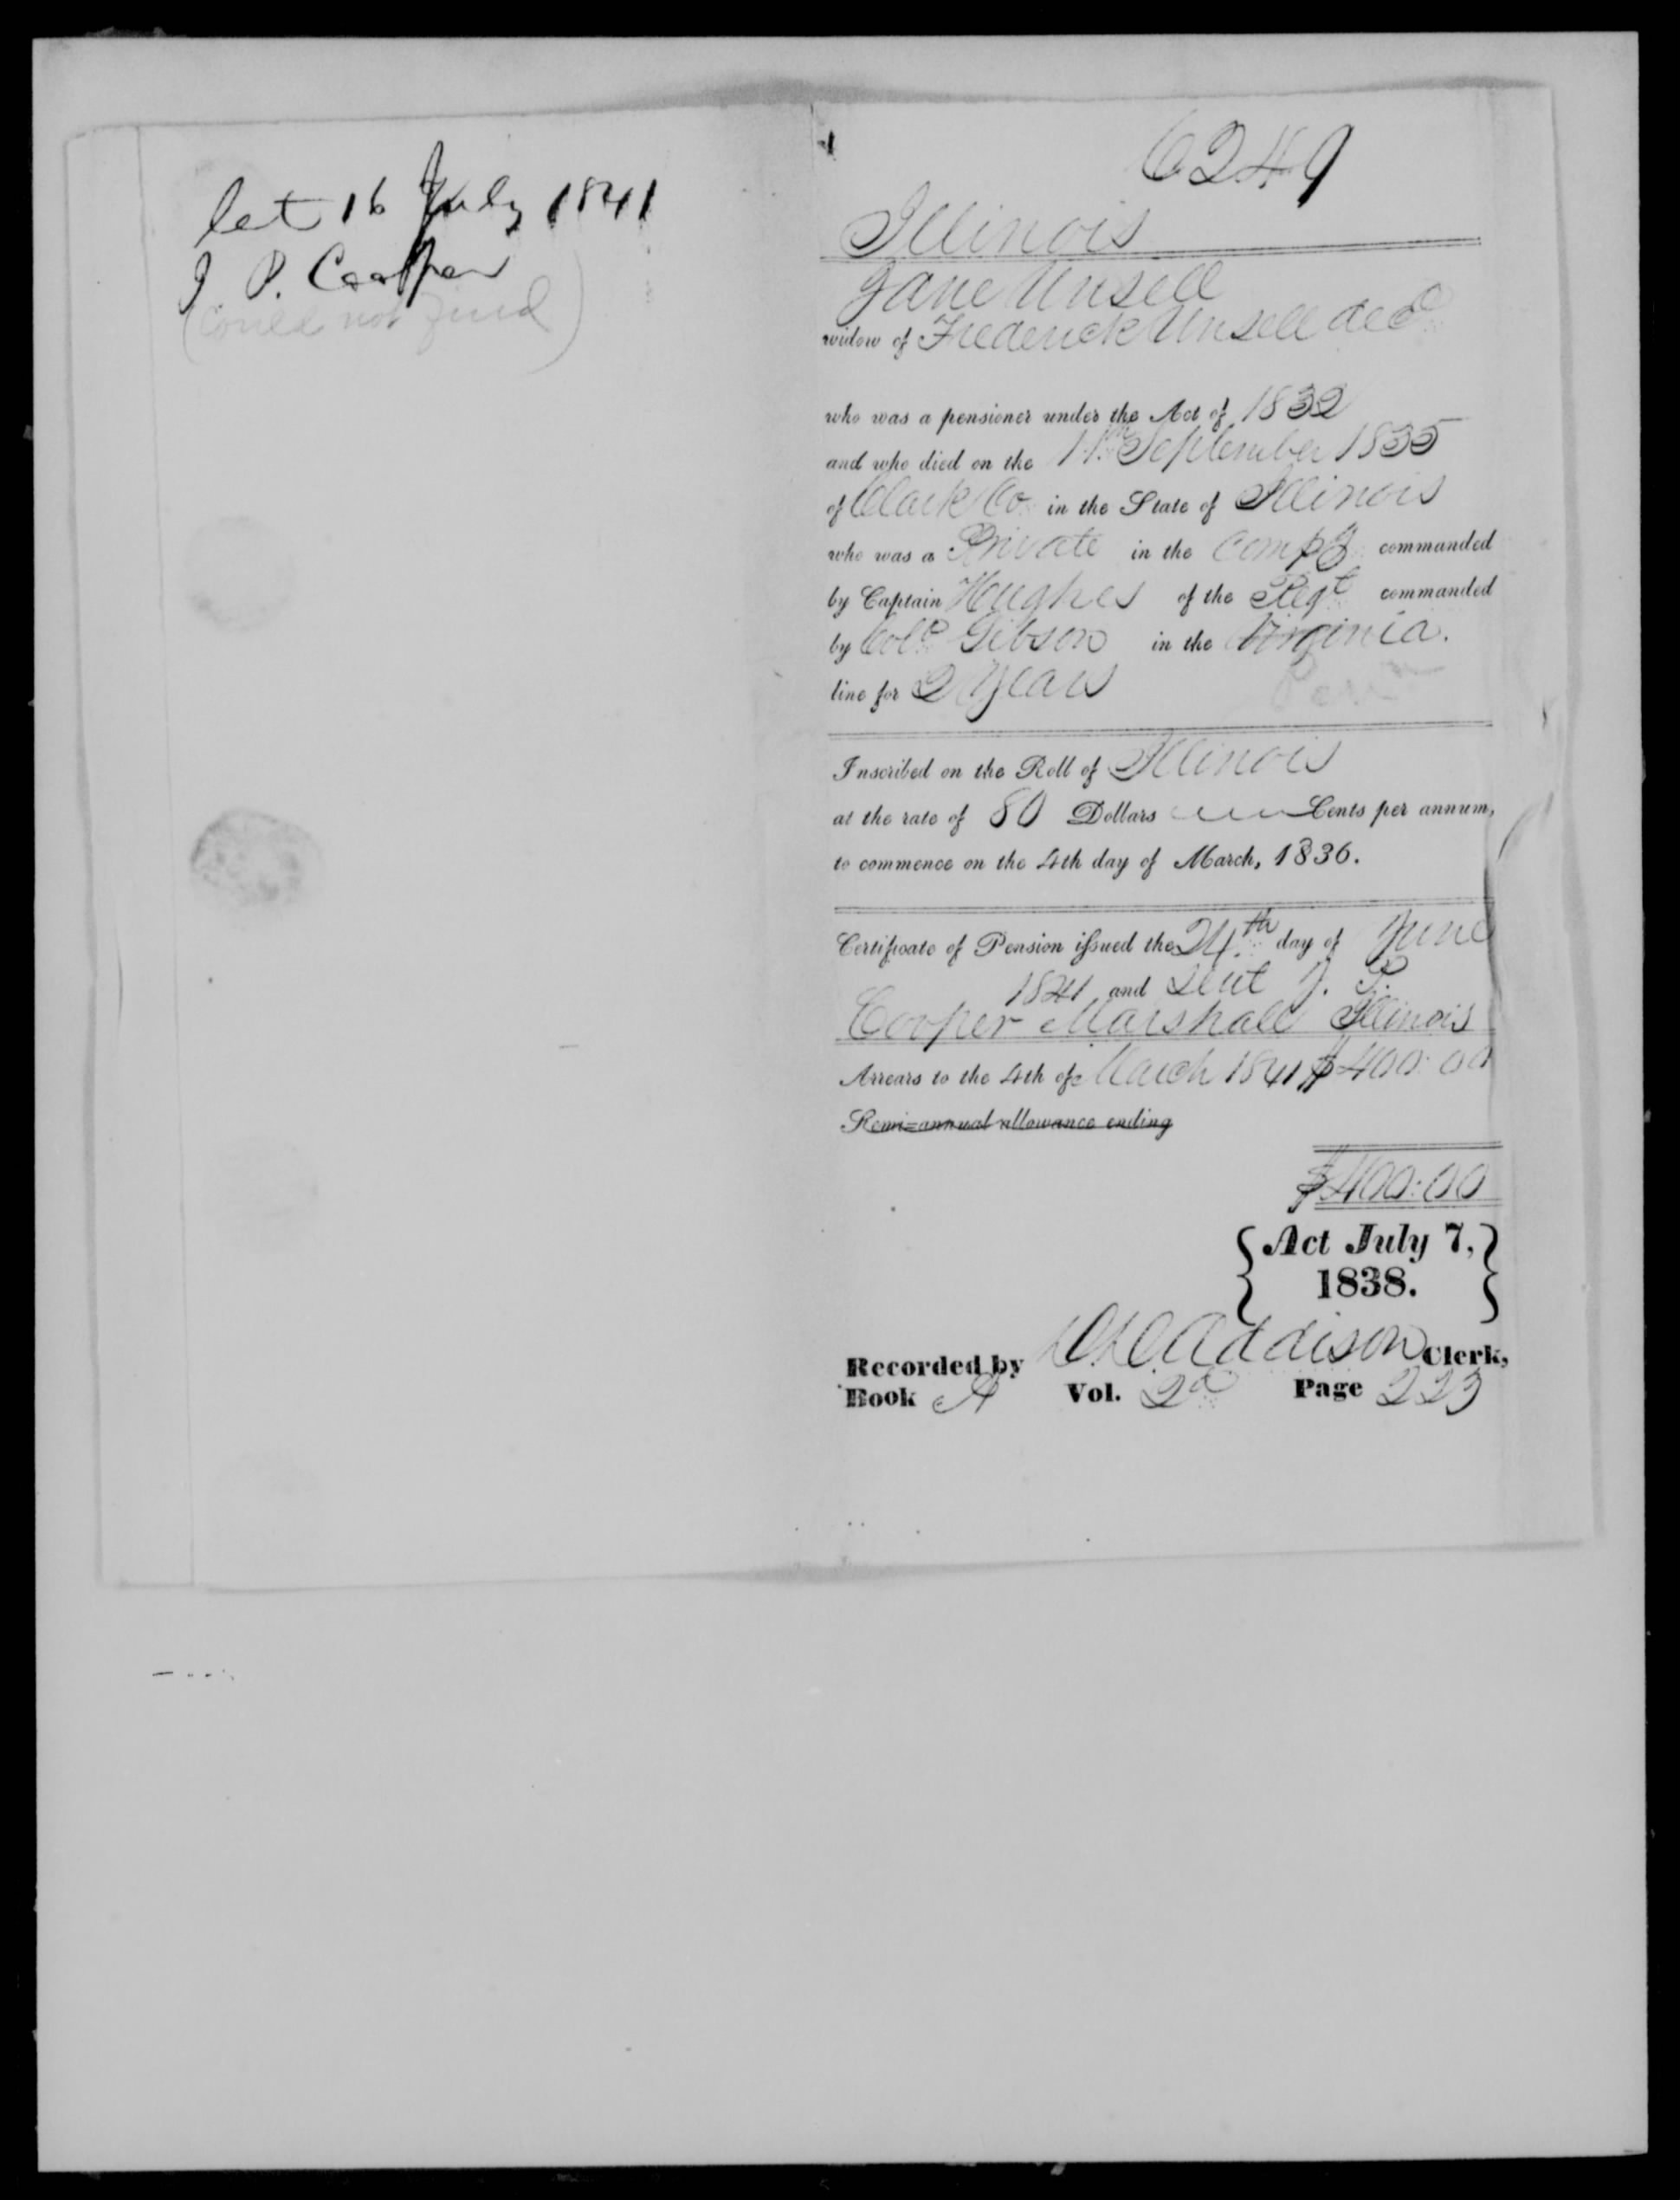 let 16 July 1841
J. P. Cooper
(Could not find)
6249
Illinois
Jane Unsell
widow of Frederick Unsell decd
who was a pensioner under the Act of 1832
and who died on the 11th September 1835
of Clark Co in the State of Illinois
who was a Private in the Compy commanded
by Captain Hughes of the Regt commanded
by Colo Gibson in the Virginia.
line for 2 Years
Inscribed on the Roll of Illinois
at the rate of 80 Dollars Cents per annum,
to commence on the 4th day of March, 1836.
Certificate of Pension issued the 24th day of June
1841 and sent J. P.
Cooper Marshall Illinois
Arrears to the 4th of March 1841 $400:00
Semi-annual allowance ending
$400:00
Act July 7,
1838.
Recorded by Addison Clerk,
Book A Vol. 2d Page 223